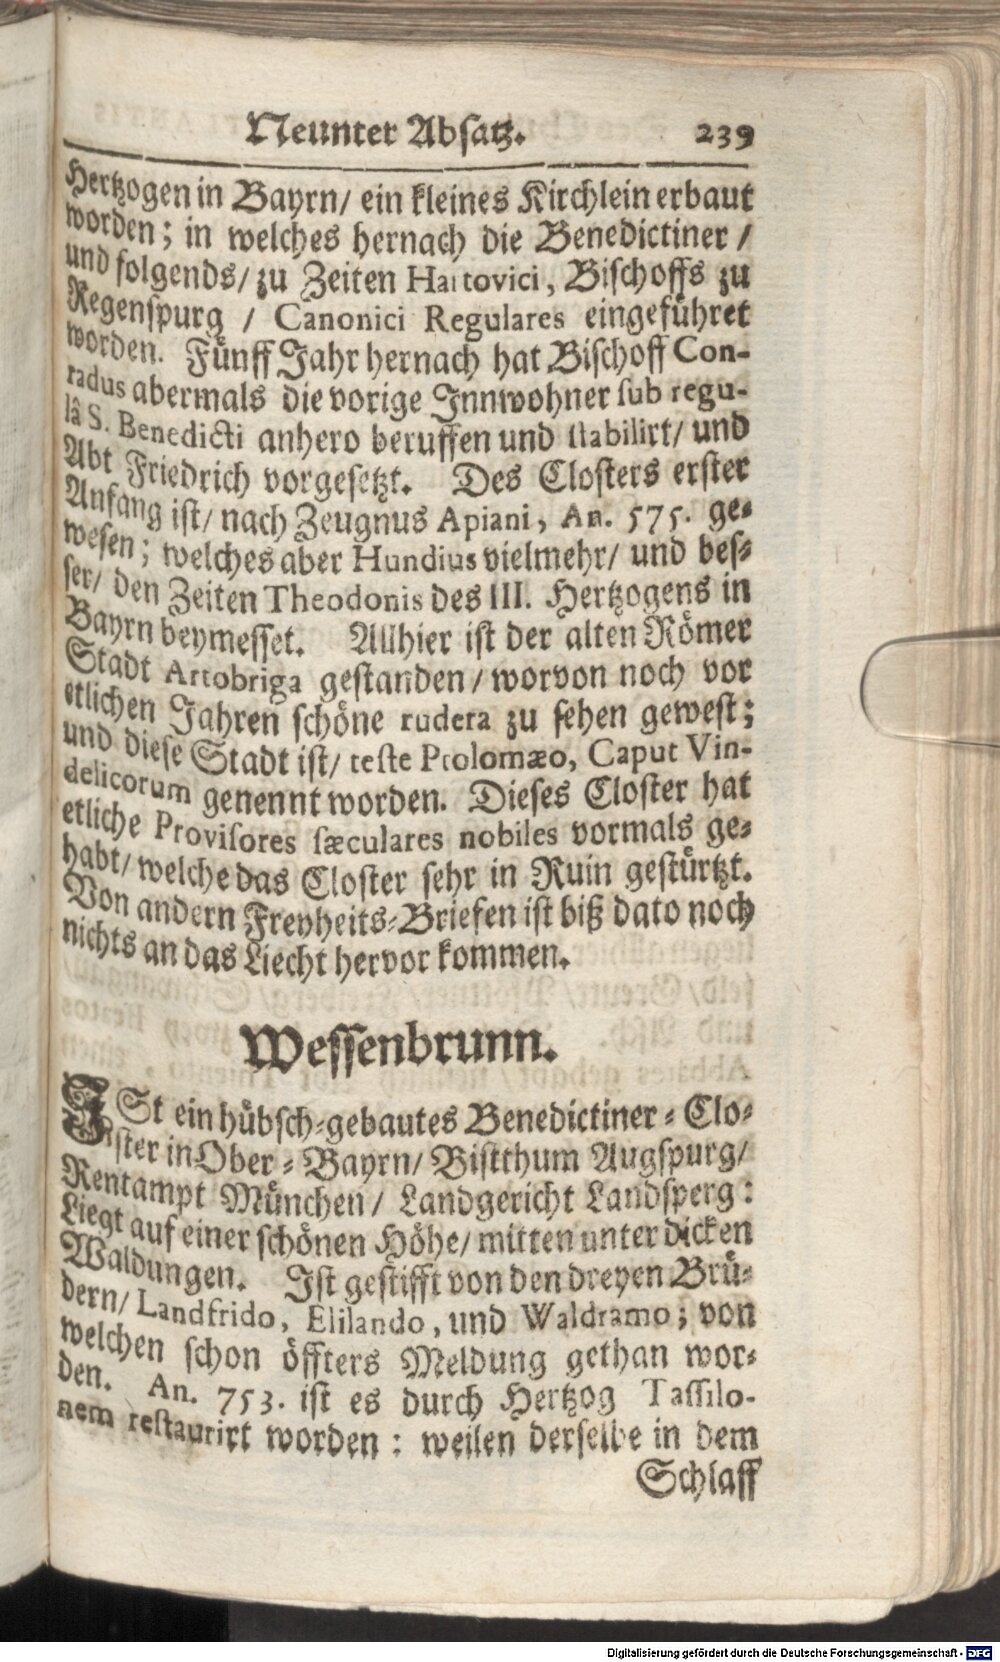 Neunter Absatz. 239
Hertzogen in Bayrn/ ein kleines Kirchlein erbaut
worden; in welches hernach die Benedictiner /
und folgends/ zu Zeiten Hartovici, Bischoffs zu
Regenspurg / Canonici Regulares eingeführet
worden. Fünff Jahr hernach hat Bischoff Con-
radus abermals die vorige Innwohner sub regu-
lâ S. Benedicti anhero beruffen und stabilirt/ und
Abt Friedrich vorgesetzt. Des Closters erster
Anfang ist/ nach Zeugnus Apiani, An. 575. ge-
wesen; welches aber Hundius vielmehr/ und bes-
ser/ den Zeiten Theodonis des III. Hertzogens in
Bayrn beymesset. Allhier ist der alten Römer
Stadt Artobriga gestanden / worvon noch vor
etlichen Jahren schöne rudera zu sehen gewest;
und diese Stadt ist/ teste Ptolomæo, Caput Vin-
delicorum genennt worden. Dieses Closter hat
etliche Provisores sæculares nobiles vormals ge-
habt/ welche das Closter sehr in Ruin gestürtzt.
Von andern Freyheits-Briefen ist biß dato noch
nichts an das Liecht hervor kommen.
Wessenbrunn.
ISt ein hübsch-gebautes Benedictiner-Clo-
ster in Ober-Bayrn/ Bistthum Augspurg/
Rentampt München/ Landgericht Landsperg:
Liegt auf einer schönen Höhe/ mitten unter dicken
Waldungen. Ist gestifft von den dreyen Brü-
dern/ Landfrido, Elilando, und Waldramo; von
welchen schon öffters Meldung gethan wor-
den. An. 753. ist es durch Hertzog Tassilo-
nem restaurirt worden: weilen derselbe in dem
Schlaff
Digitalisierung gefördert durch die Deutsche Forschungsgemeinschaft - DFG